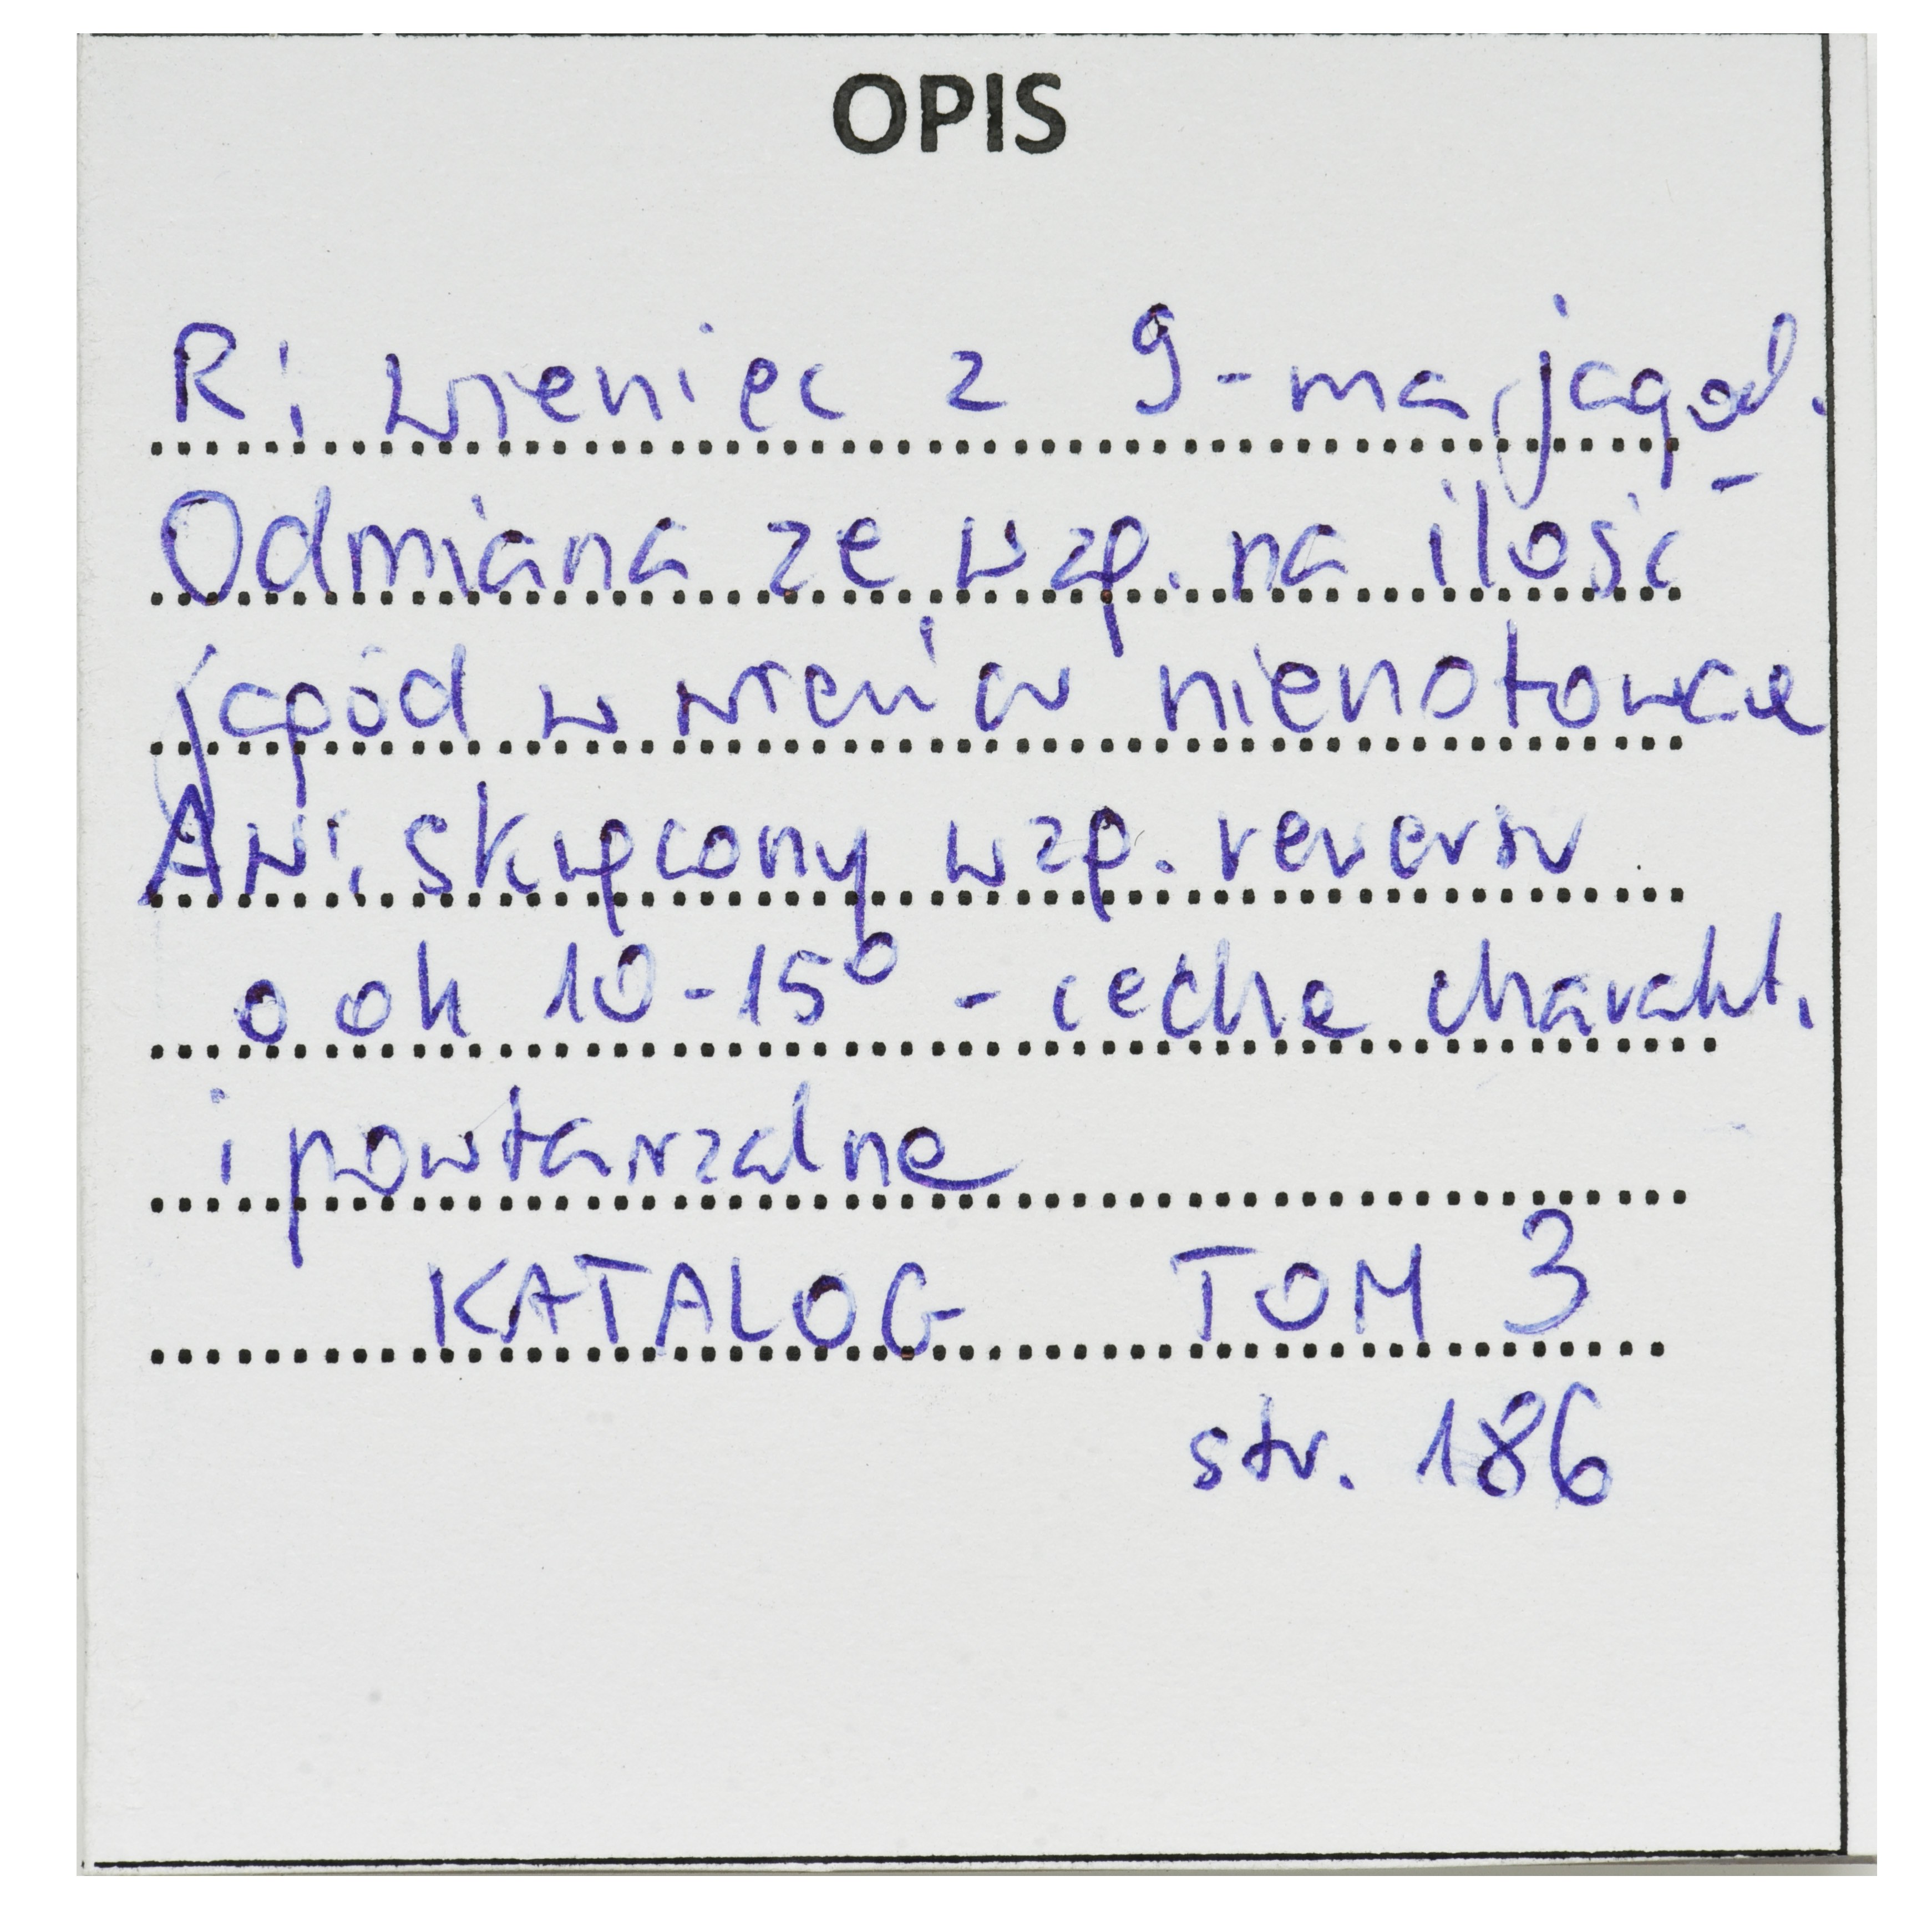 OPIS
R: wieniec z 9-ma jagod.
Odmiana ze wzg. na ilość
jagód w wieńcu nienotowana
Aw: skręcony wzg. rewersu
o ok 10-15° - cecha charakt.
i powtarzalna
KATALOG TOM 3
str. 186